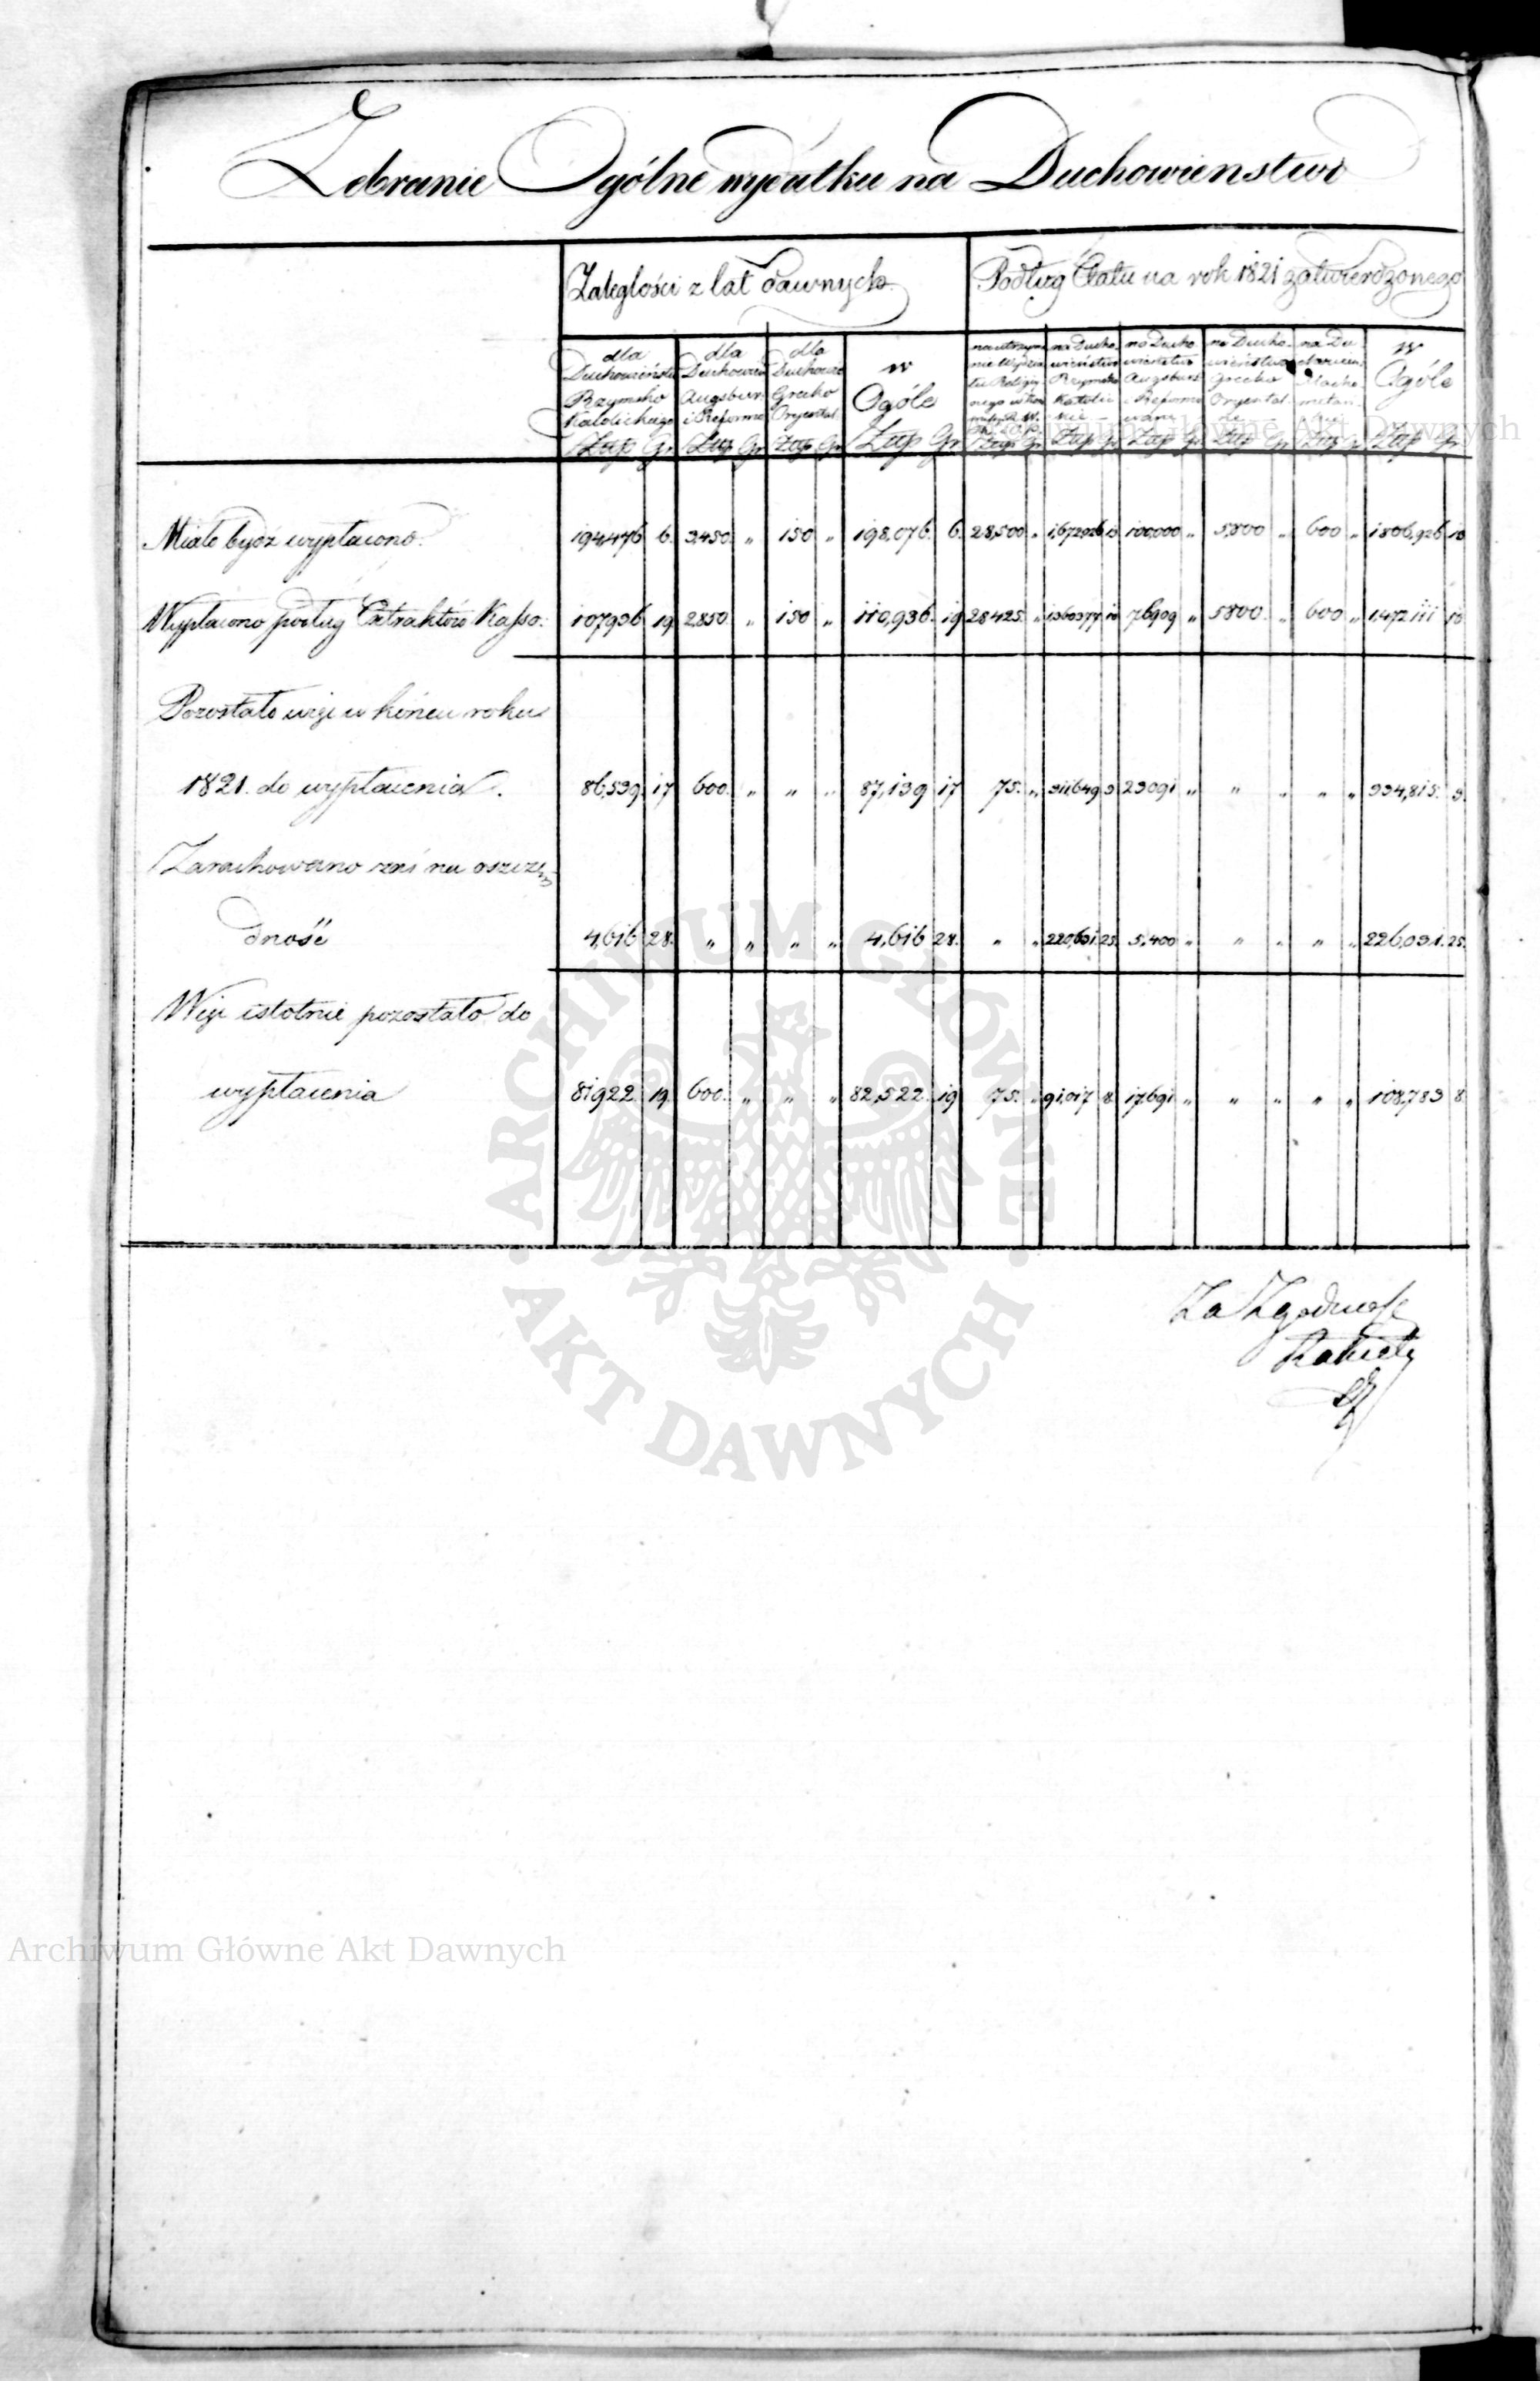 Zebranie Ogólne wydatku na Duchowienstwo
Zaległości z lat dawnych
Podług Etatu na rok 1821 zatwierdzonego
dla Duchowieństa Rzymsko Katolickiego
dla Duchowień Augsbur. i Reforma
dla Duchowie Grecko Oryental.
w Ogóle
na utrzyma nie Wydzia łu Religij nego
na Ducho wieństwo Rzymsko Katolic kie
na Ducho wieństwo Augsburs i Reformo wane
na Ducho- wieństwo Grecko Oryental- ne
na Du- chowień. Macho metań- skie
w Ogóle
Złtp Gr Złtp Gr Złtp Gr Złtp Gr Złtp Gr Złtp Gr Złtp Gr Złtp Gr Złtp Gr Złtp Gr
Miało bydź wypłacono. 194,476 6. 3,450 " 150 " 198,076. 6. 28,500 " 1,672,026 13 100,000 " 5,800 " 600 " 1,806,926 13
Wypłacono podług Extraktów Kasso: 107,936 19 2,850 " 150 " 110,936. 19 28425. " 1360377 10 76909 " 5800. " 600 " 1,472,111 10
Pozostało więc w końcu roku
1821. do wypłacenia. 86,539. 17 600. " " " 87,139 17 75. " 311,649 3 23091 " " " " " 334,815. 3.
Zarachowano zaś na oszczę-
dność 4,616 28. " " " " 4,616 28. " " 220,631. 25. 5,400 " " " " " 226,031. 25.
Więc istotnie pozostało do
wypłacenia 81922. 19. 600. " " " 82,522. 19 75. " 91,017 8. 17,691 " " " " " 108,783 8.
Za Zgodność
ARCHIWUM GŁÓWNE AKT DAWNYCH
Archiwum Główne Akt Dawnych
Archiwum Główne Akt Dawnych